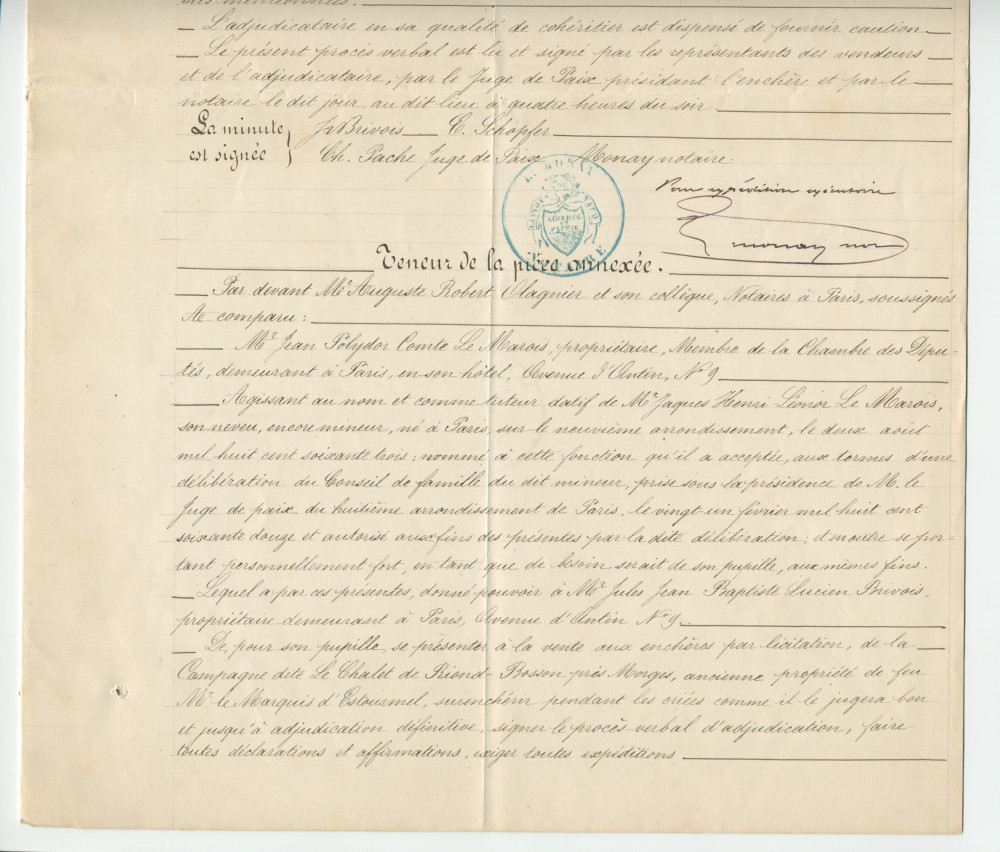 L'adjudicataire en sa qualité de cohéritier est dispensé de fournir caution.
Le présent procès verbal est lu et signé par les représentants des vendeurs
et de l'adjudicataire, par le Juge de Paix présidant l'enchère et par le
notaire le dit jour, au dit lieu à quatre heures du soir
La minute est signée } J. Brivois C. Schopfer
Ch. Pache Juge de Paix Monay notaire.
Pour expédition exécutoire
Monay not
MONAY
LIBERTÉ
ET
PATRIE
NOTAIRE
Teneur de la pièce annexée.
Par devant Me Auguste Robert Olagnier et son collègue, Notaires à Paris, soussignés
A comparu:
Mr Jean Polydor Comte Le Marois, propriétaire, Membre de la Chambre des Dépu-
tés, demeurant à Paris, en son hôtel, Avenue d'Antin, No 9
Agissant au nom et comme tuteur datif de Mr Jaques Henri Léonor Le Marois,
son neveu, encore mineur, né à Paris, sur le neuvième arrondissement, le deux août
mil huit cent soixante trois; nommé à cette fonction qu'il a acceptée, aux termes d'une
délibération du Conseil de famille du dit mineur, prise sous la présidence de M. le
Juge de paix du huitième arrondissement de Paris, le vingt un février mil huit cent
soixante douze et autorisé aux fins des présentes par la dite délibération; et en outre se por-
tant personnellement fort, en tant que de besoin serait de son pupille, aux mêmes fins.
Lequel a par ces présentes, donné pouvoir à Mr Jules Jean Baptiste Lucien Brivois,
propriétaire demeurant à Paris, Avenue d'Antin No 9
De, pour son pupille, se présenter à la vente aux enchères par licitation, de la
Campagne dite Le Chalet de Riond-Bosson près Morges, ancienne propriété de feu
Mr le Marquis d'Estourmel, surenchérir pendant les criées comme il le jugera bon
et jusqu'à adjudication définitive, signer le procès verbal d'adjudication, faire
toutes déclarations et affirmations, exiger toutes expéditions